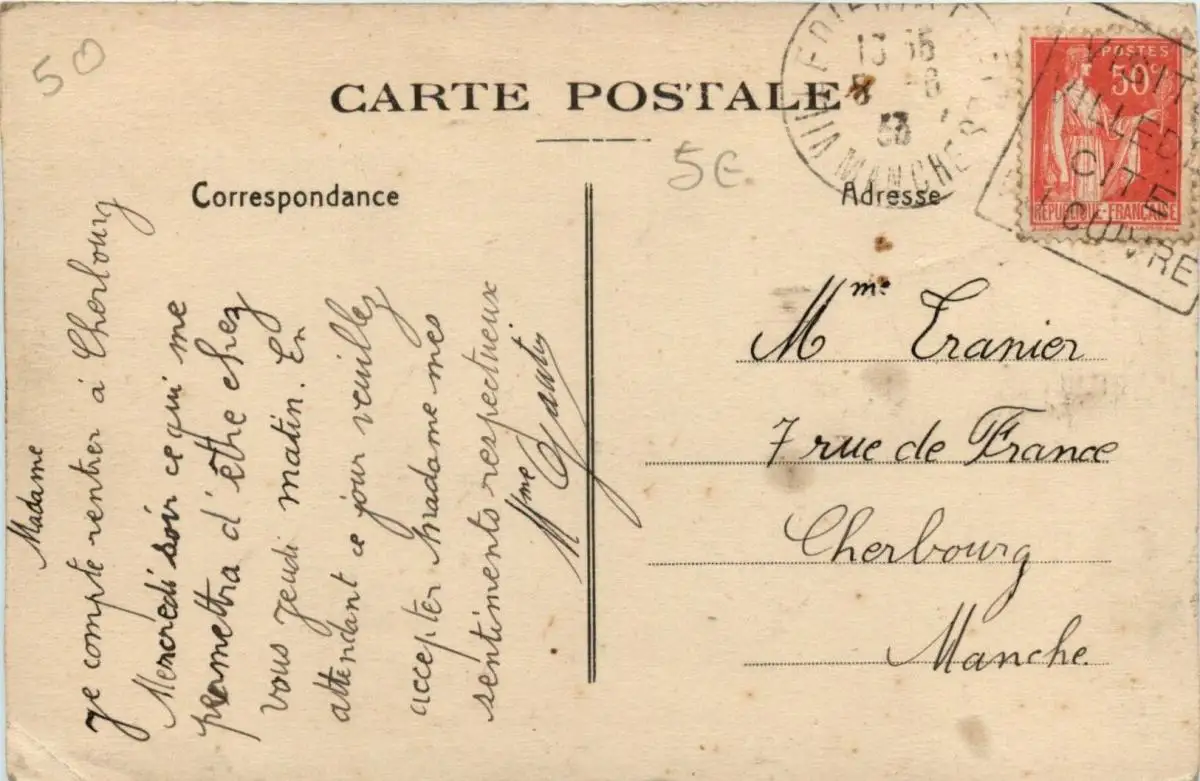 50
CARTE POSTALE
5€
Correspondance
Adresse
MANCHE
13
8 -6
33
POSTES
50c
RÉPUBLIQUE-FRANÇAISE
VISIT
VILLEDI
CITE
CUIVRE
Madame
je compte rentrer à Cherbourg
Mercredi soir ce qui me
permettra d'être chez
vous jeudi matin. En
attendant ce jour veuillez
accepter Madame mes
sentiments respectueux
Mme
Mme Tranier
7 rue de France
Cherbourg
Manche